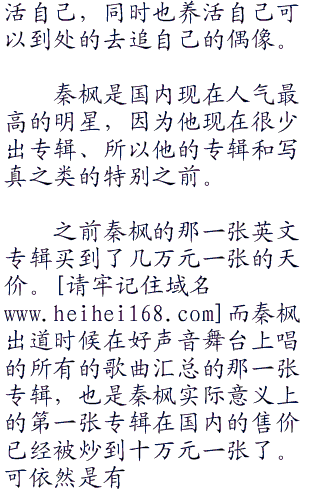 活自己，同时也养活自己可
以到处的去追自己的偶像。
秦枫是国内现在人气最
高的明星，因为他现在很少
出专辑、所以他的专辑和写
真之类的特别之前。
之前秦枫的那一张英文
专辑买到了几万元一张的天
价。[请牢记住域名
www.heihei168.com]而秦枫
出道时候在好声音舞台上唱
的所有的歌曲汇总的那一张
专辑，也是秦枫实际意义上
的第一张专辑在国内的售价
已经被炒到十万元一张了。
可依然是有